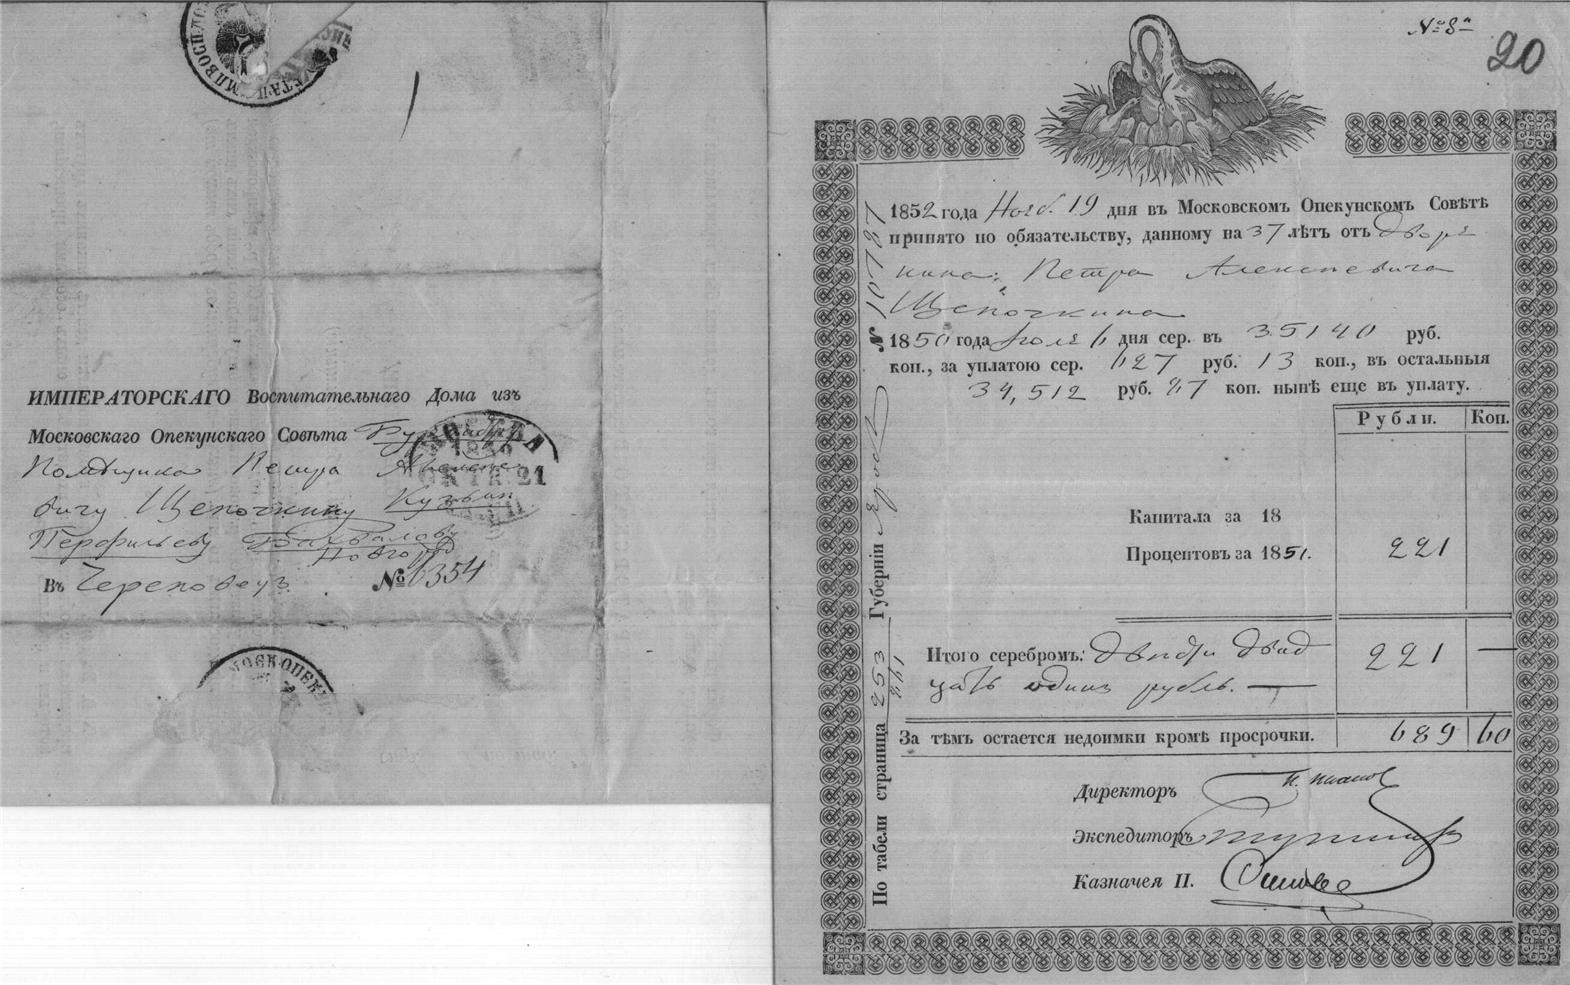 ИМПЕРАТОРСКАГО Воспитательнаго Дома изъ
Московскаго Опекунскаго Совѣта
Помѣщика Петра Алексѣе
вичу Щепочкину Кузьми
Перфильеву
Новгор
Въ Череповецъ № 6354
МОСКВА
1852
ОКТЯ. 21
МОСК. ОПЕКУН
№ 8й
20
1852 года Нояб. 19 дня въ Московскомъ Опекунскомъ Совѣтѣ
принято по обязательству, данному на 37 лѣтъ отъ Дворя
нина Петра Алексѣевича
Щепочкина
1850 года Іюля 6 дня сер. въ 35140 руб.
коп., за уплатою сер. 627 руб. 13 коп., въ остальныя
34,512 руб. 87 коп. нынѣ еще въ уплату.
Рубли. Коп.
Капитала за 18
Процентовъ за 1851. 221
Итого серебромъ: Двѣсти двад 221 —
цать одинъ рубль. —
За тѣмъ остается недоимки кромѣ просрочки. 689 60
Директоръ
Экспедиторъ
Казначея П.
По табели страница 253 Губерніи Яросл № 10787